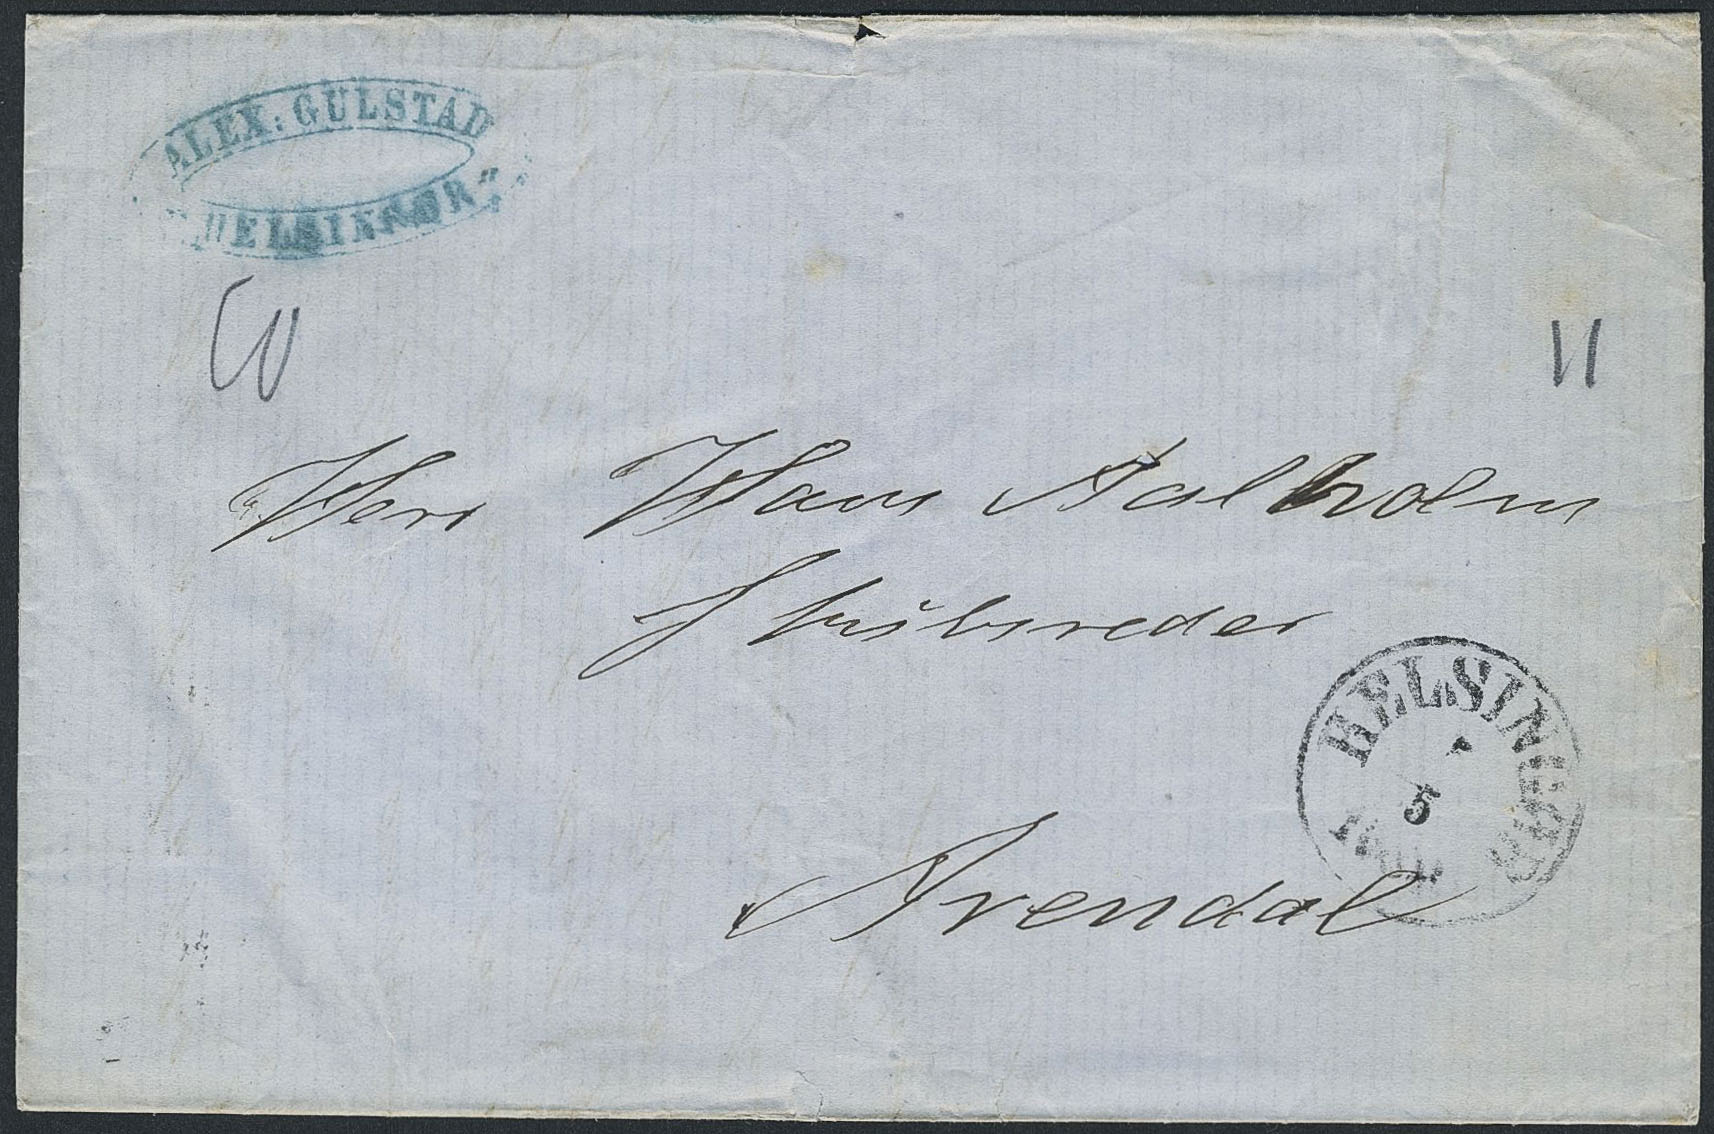 ALEX: GULSTAD
HELSINGØR
11
Herr Hans Aalholm
Skibsreder
HELSINGØR
5
Arendal